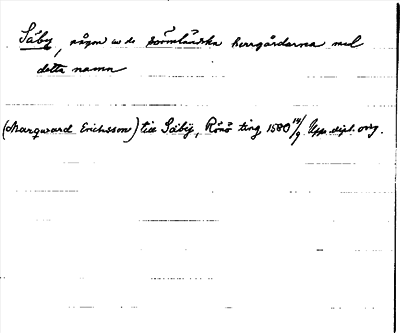 Säby, någon av de sörmländska herrgårdarna med
detta namn
(Marqward Erichsson) till Säby, Rönö ting 1580 14/9. Upps. dipl. orig.